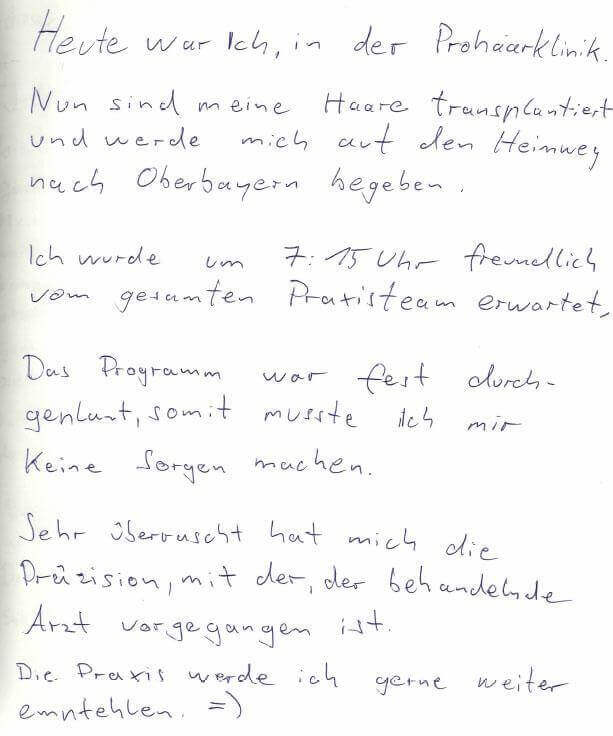 Heute war Ich, in der Prohaarklinik.
Nun sind meine Haare transplantiert
und werde mich auf den Heimweg
nach Oberbayern begeben.
Ich wurde um 7:15 Uhr freundlich
vom gesamten Praxisteam erwartet,
Das Programm war fest durch-
genlant, somit musste ich mir
Keine Sorgen machen.
Sehr überrascht hat mich die
Präzision, mit der, der behandelnde
Arzt vorgegangen ist.
Die Praxis werde ich gerne weiter
empfehlen. =)